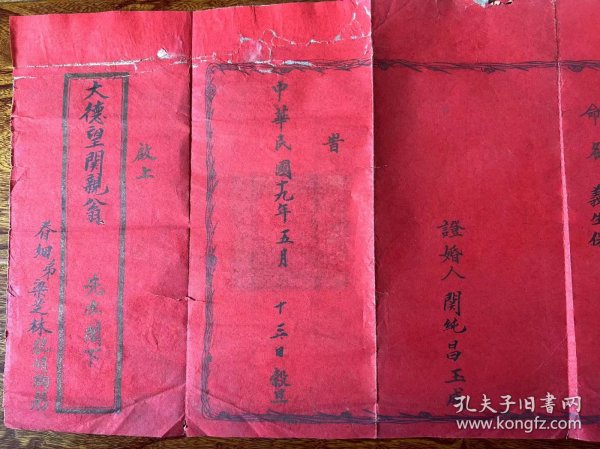 命
義生
證婚人 関純昌 玉
旹
中華民國十九年五月 十三日 穀旦
啟上
大德望関親翁 先生閣下
眷姻弟梁芝林
孔夫子旧书网
www.kongfz.com